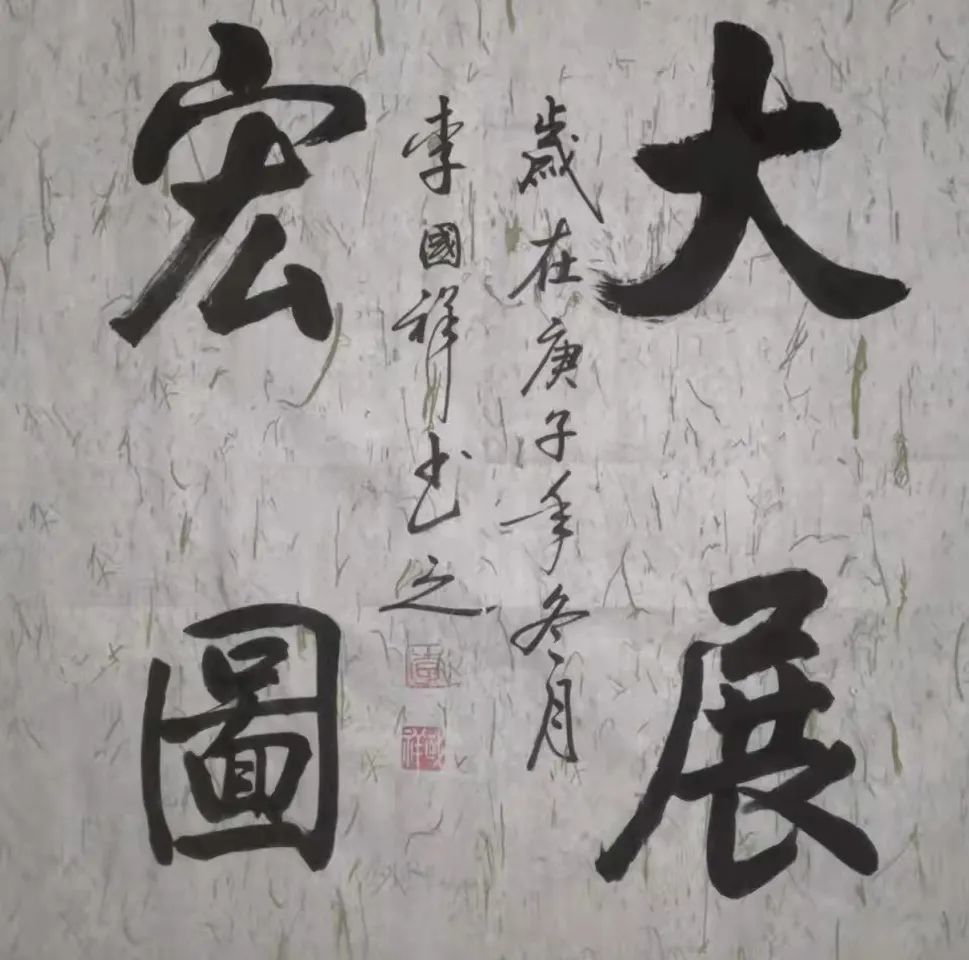 大展
宏圖
歲在庚子年冬月
李國祥书之
國祥